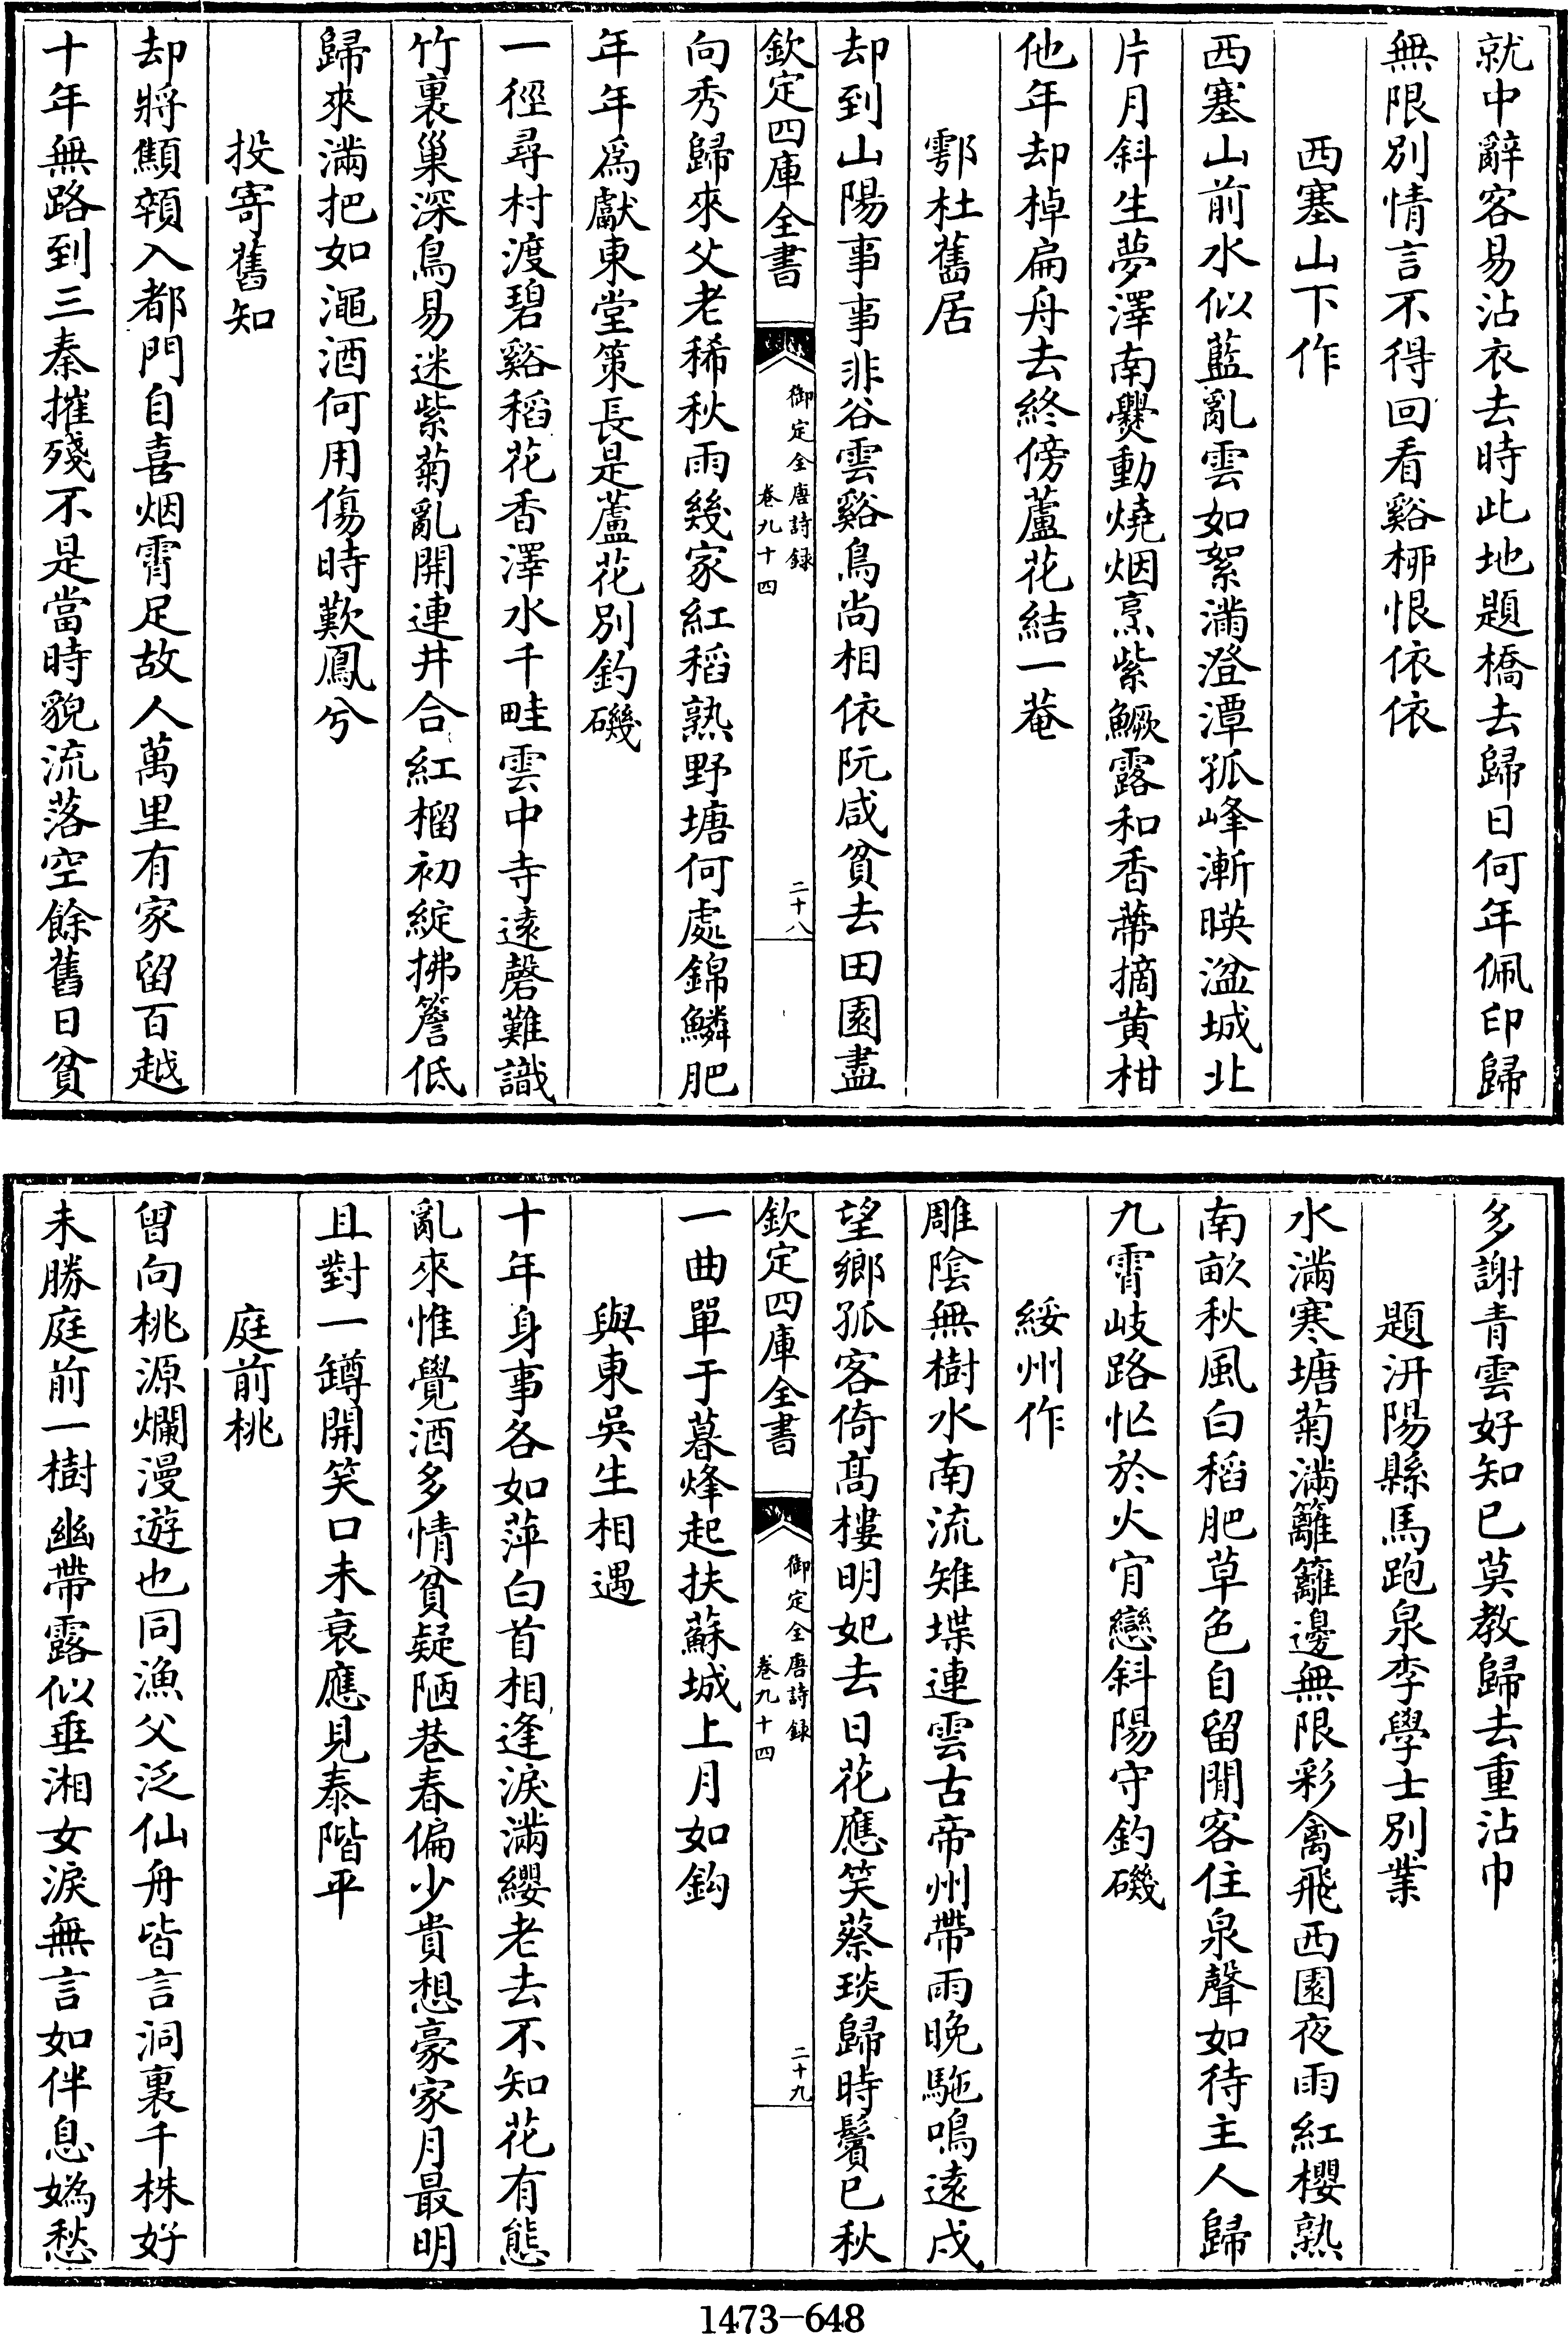 就中辭客易沾衣去時此地題橋去歸日何年佩印歸
無限別情言不得回看谿栁恨依依
西塞山下作
西塞山前水似藍亂雲如絮滿澄潭孤峰漸暎湓城北
片月斜生夢澤南爨動燒烟烹紫鱖露和香蔕摘黃柑
他年却棹扁舟去終傍蘆花結一菴
鄠杜舊居
却到山陽事事非谷雲谿鳥尚相依阮咸貧去田園盡
欽定四庫全書
御定全唐詩録
卷九十四
二十八
向秀歸來父老稀秋雨幾家紅稻熟野塘何處錦鱗肥
年年爲獻東堂策長是蘆花別釣磯
一徑尋村渡碧谿稻花香澤水千畦雲中寺遠磬難識
竹裏巢深鳥易迷紫菊亂開連井合紅榴初綻拂簷低
歸來滿把如澠酒何用傷時歎鳳兮
投寄舊知
却將顦顇入都門自喜烟霄足故人萬里有家留百越
十年無路到三秦摧殘不是當時貌流落空餘舊日貧
多謝青雲好知已莫教歸去重沾巾
題汧陽縣馬跑泉李學士別業
水滿寒塘菊滿籬籬邊無限彩禽飛西園夜雨紅櫻熟
南畝秋風白稻肥草色自留閒客住泉聲如待主人歸
九霄岐路忙於火肯戀斜陽守釣磯
綏州作
雕陰無樹水南流雉堞連雲古帝州帶雨晚駞鳴遠戍
望鄉孤客倚髙樓明妃去日花應笑蔡琰歸時鬢已秋
欽定四庫全書
御定全唐詩録
卷九十四
二十九
一曲單于暮烽起扶蘇城上月如鈎
與東吳生相遇
十年身事各如萍白首相逢淚滿纓老去不知花有態
亂來惟覺酒多情貧疑陋巷春偏少貴想豪家月最明
且對一罇開笑口未衰應見泰階平
庭前桃
曾向桃源爛漫遊也同漁父泛仙舟皆言洞裏千株好
未勝庭前一樹幽帶露似垂湘女淚無言如伴息嬀愁
1473-648